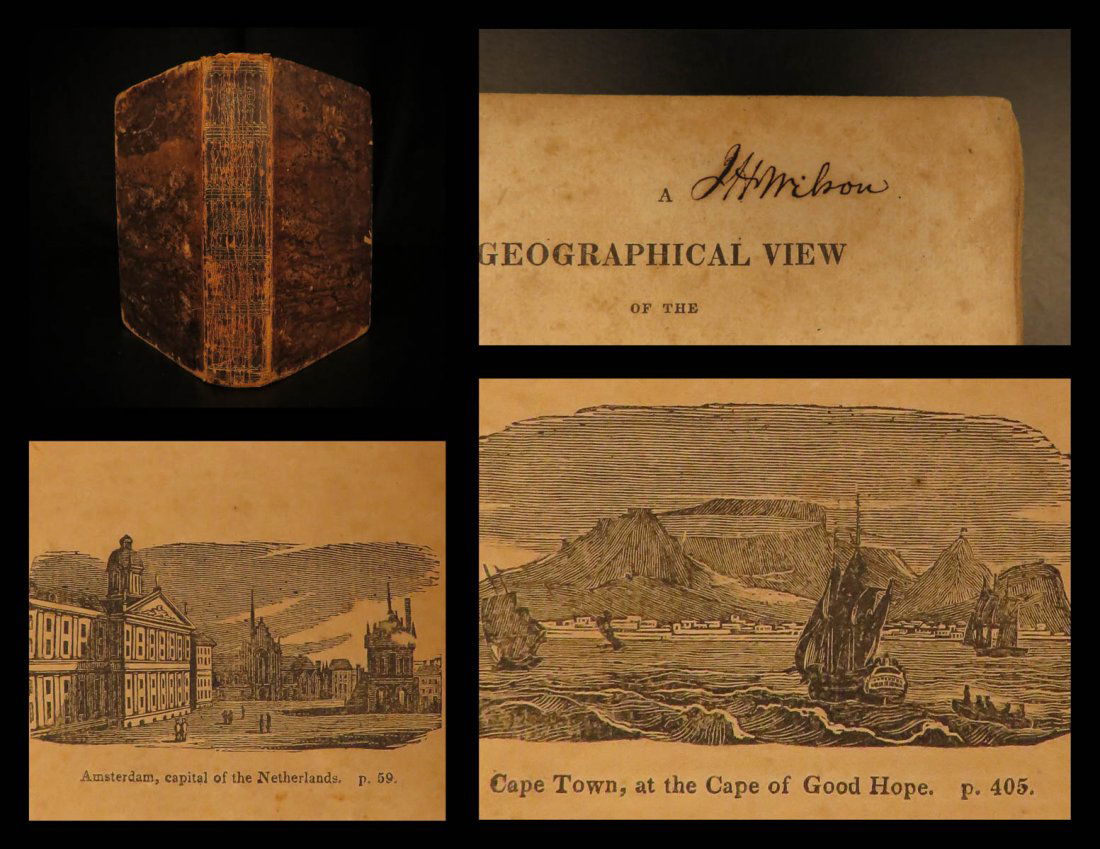 A J H Wilson
GEOGRAPHICAL VIEW
OF THE
Amsterdam, capital of the Netherlands. p. 59.
Cape Town, at the Cape of Good Hope. p. 405.